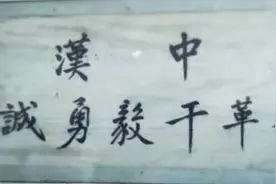 漢中
誠勇毅干革